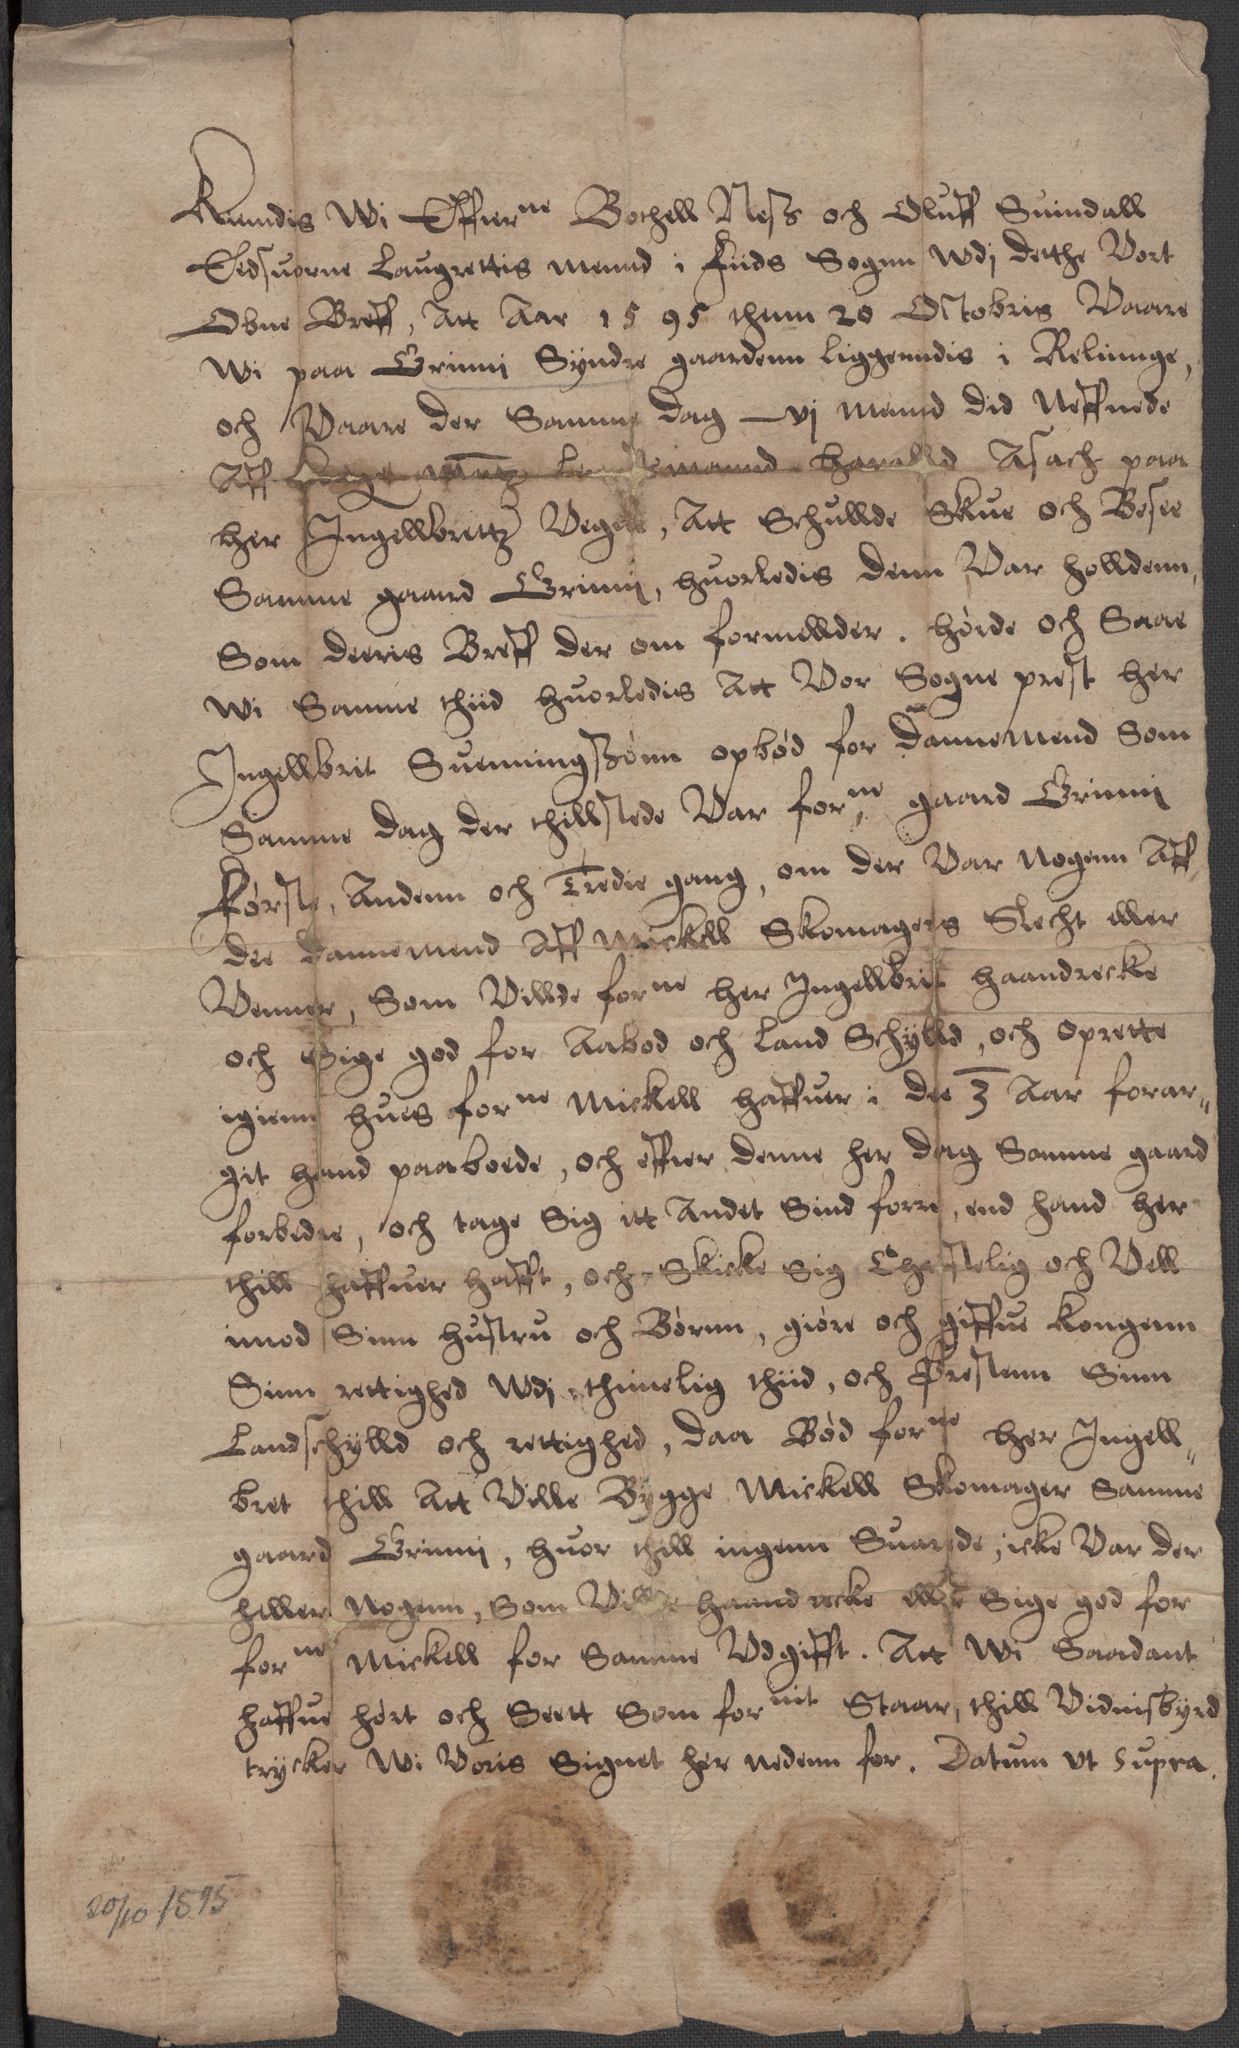 Kunndis Wi Effterne Bothell Ness och Oluff Suindall
Eedsuorne Laugrettis mennd i Eids Sognn Wdj dethe Vort
Obne Breff, Att Aar 1595 thenn 20 Octobris Vaare
Wi paa Grimmj Syndre gaardenn liggenndis i Reluinge,
och Vaare der Samme dag vj mennd did Neffnede
Aff Lendtzmannd Haralld Asach paa
her Jngellbrettz Vegne, Att Schullde Skue och Besee
Samme gaard Grimmj, huorledis denn Var holldenn,
Som deeris Breff der om formellder. hørde och Saae
Wi Samme thiid huorledis Att Vor Sogne prest her
Jngellbrit Suenningssønn opbød for Dannemend Som
Samme dag der thillstede Var forne gaard Grimmj
Første, Andenn och Tredie gang, om der Var nogenn Aff
dee Dannemend Aff Mickell Skomagers Slecht eller
Venner, Som Villde forne her Jngellbrit haandrecke
och Sige god for Aabod och Land Schylld, och oprette
igienn hues forne Mickell haffuer i dee 3 Aar forar„
git hand paaboede, och effter denne her dag Samme gaard
forbedre, och tage Sig itt Andet Sind forre, end hand her
thill haffuer hafft, och Skicke Sig Christelig och Vell
imod Sinn hustru och Børnn, giøre och giffue Kongenn
Sinn rettighed Wdj thimelig thiid, och Prestenn Sinn
Landschylld och rettighed, daa Bød forne her Jngell„
bret thill Att Ville Bygge Mickell Skomager Samme
gaard Grimmj, huor thill ingenn Suarede, icke Var der
heller Nogenn, Som Villde haandrecke eller Sige god for
forne Mickell for Samme Vdgifft. Att Wi Saadant
haffue hørt och Seett Som foruit Staar, thill Vidnisbyrd
trycker Wi Voris Signet her nedenn for. Datum vt Supra.
20/10 1595